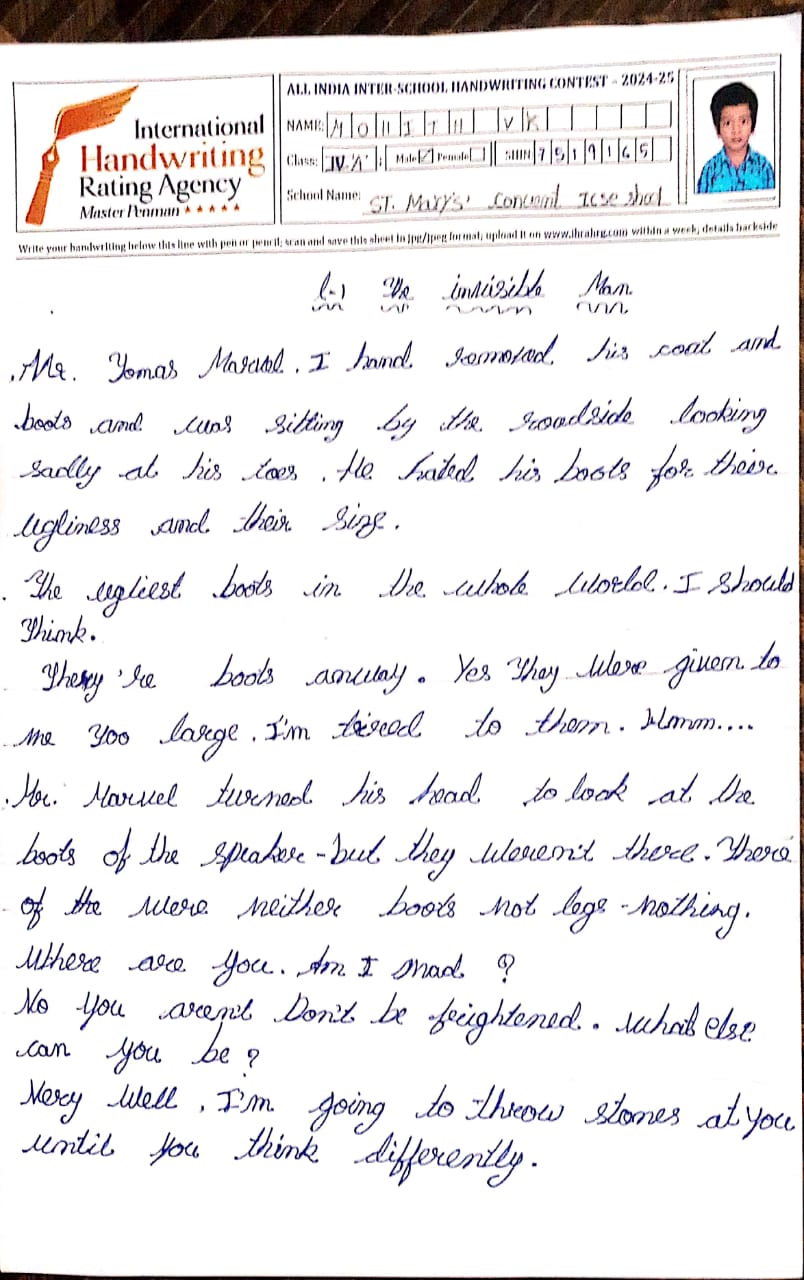 International
Handwriting
Rating Agency
Master Penman ★★★★★
ALL INDIA INTER-SCHOOL HANDWRITING CONTEST - 2024-25
NAME: MOHITH VK
Class: IV 'A' Male ✓ Female SHN 7519165
School Name: ST. Mary's' Convent Icse shool
Write your handwriting below this line with pen or pencil; scan and save this sheet in jpg/jpeg format; upload it on www.ihrahrg.com within a week; details backside
L-1 The invisible Man
Mr. Tomas Marvel. I hand removed his coat and
boots and was sitting by the roadside looking
sadly at his toes. He hated his boots for their
ugliness and their size.
The ugliest boots in the whole world. I should
Think.
They're boots anyway. Yes They were given to
me Too large. I'm tired to them. Hmm....
Mr. Marvel turned his head to look at the
boots of the speaker - but they weren't there. There
of the were neither boots not legs - nothing.
Where are you. Am I mad ?
No you aren't Don't be frightened. What else
can you be?
Very Well, I'm going to throw stones at you
until you think differently.